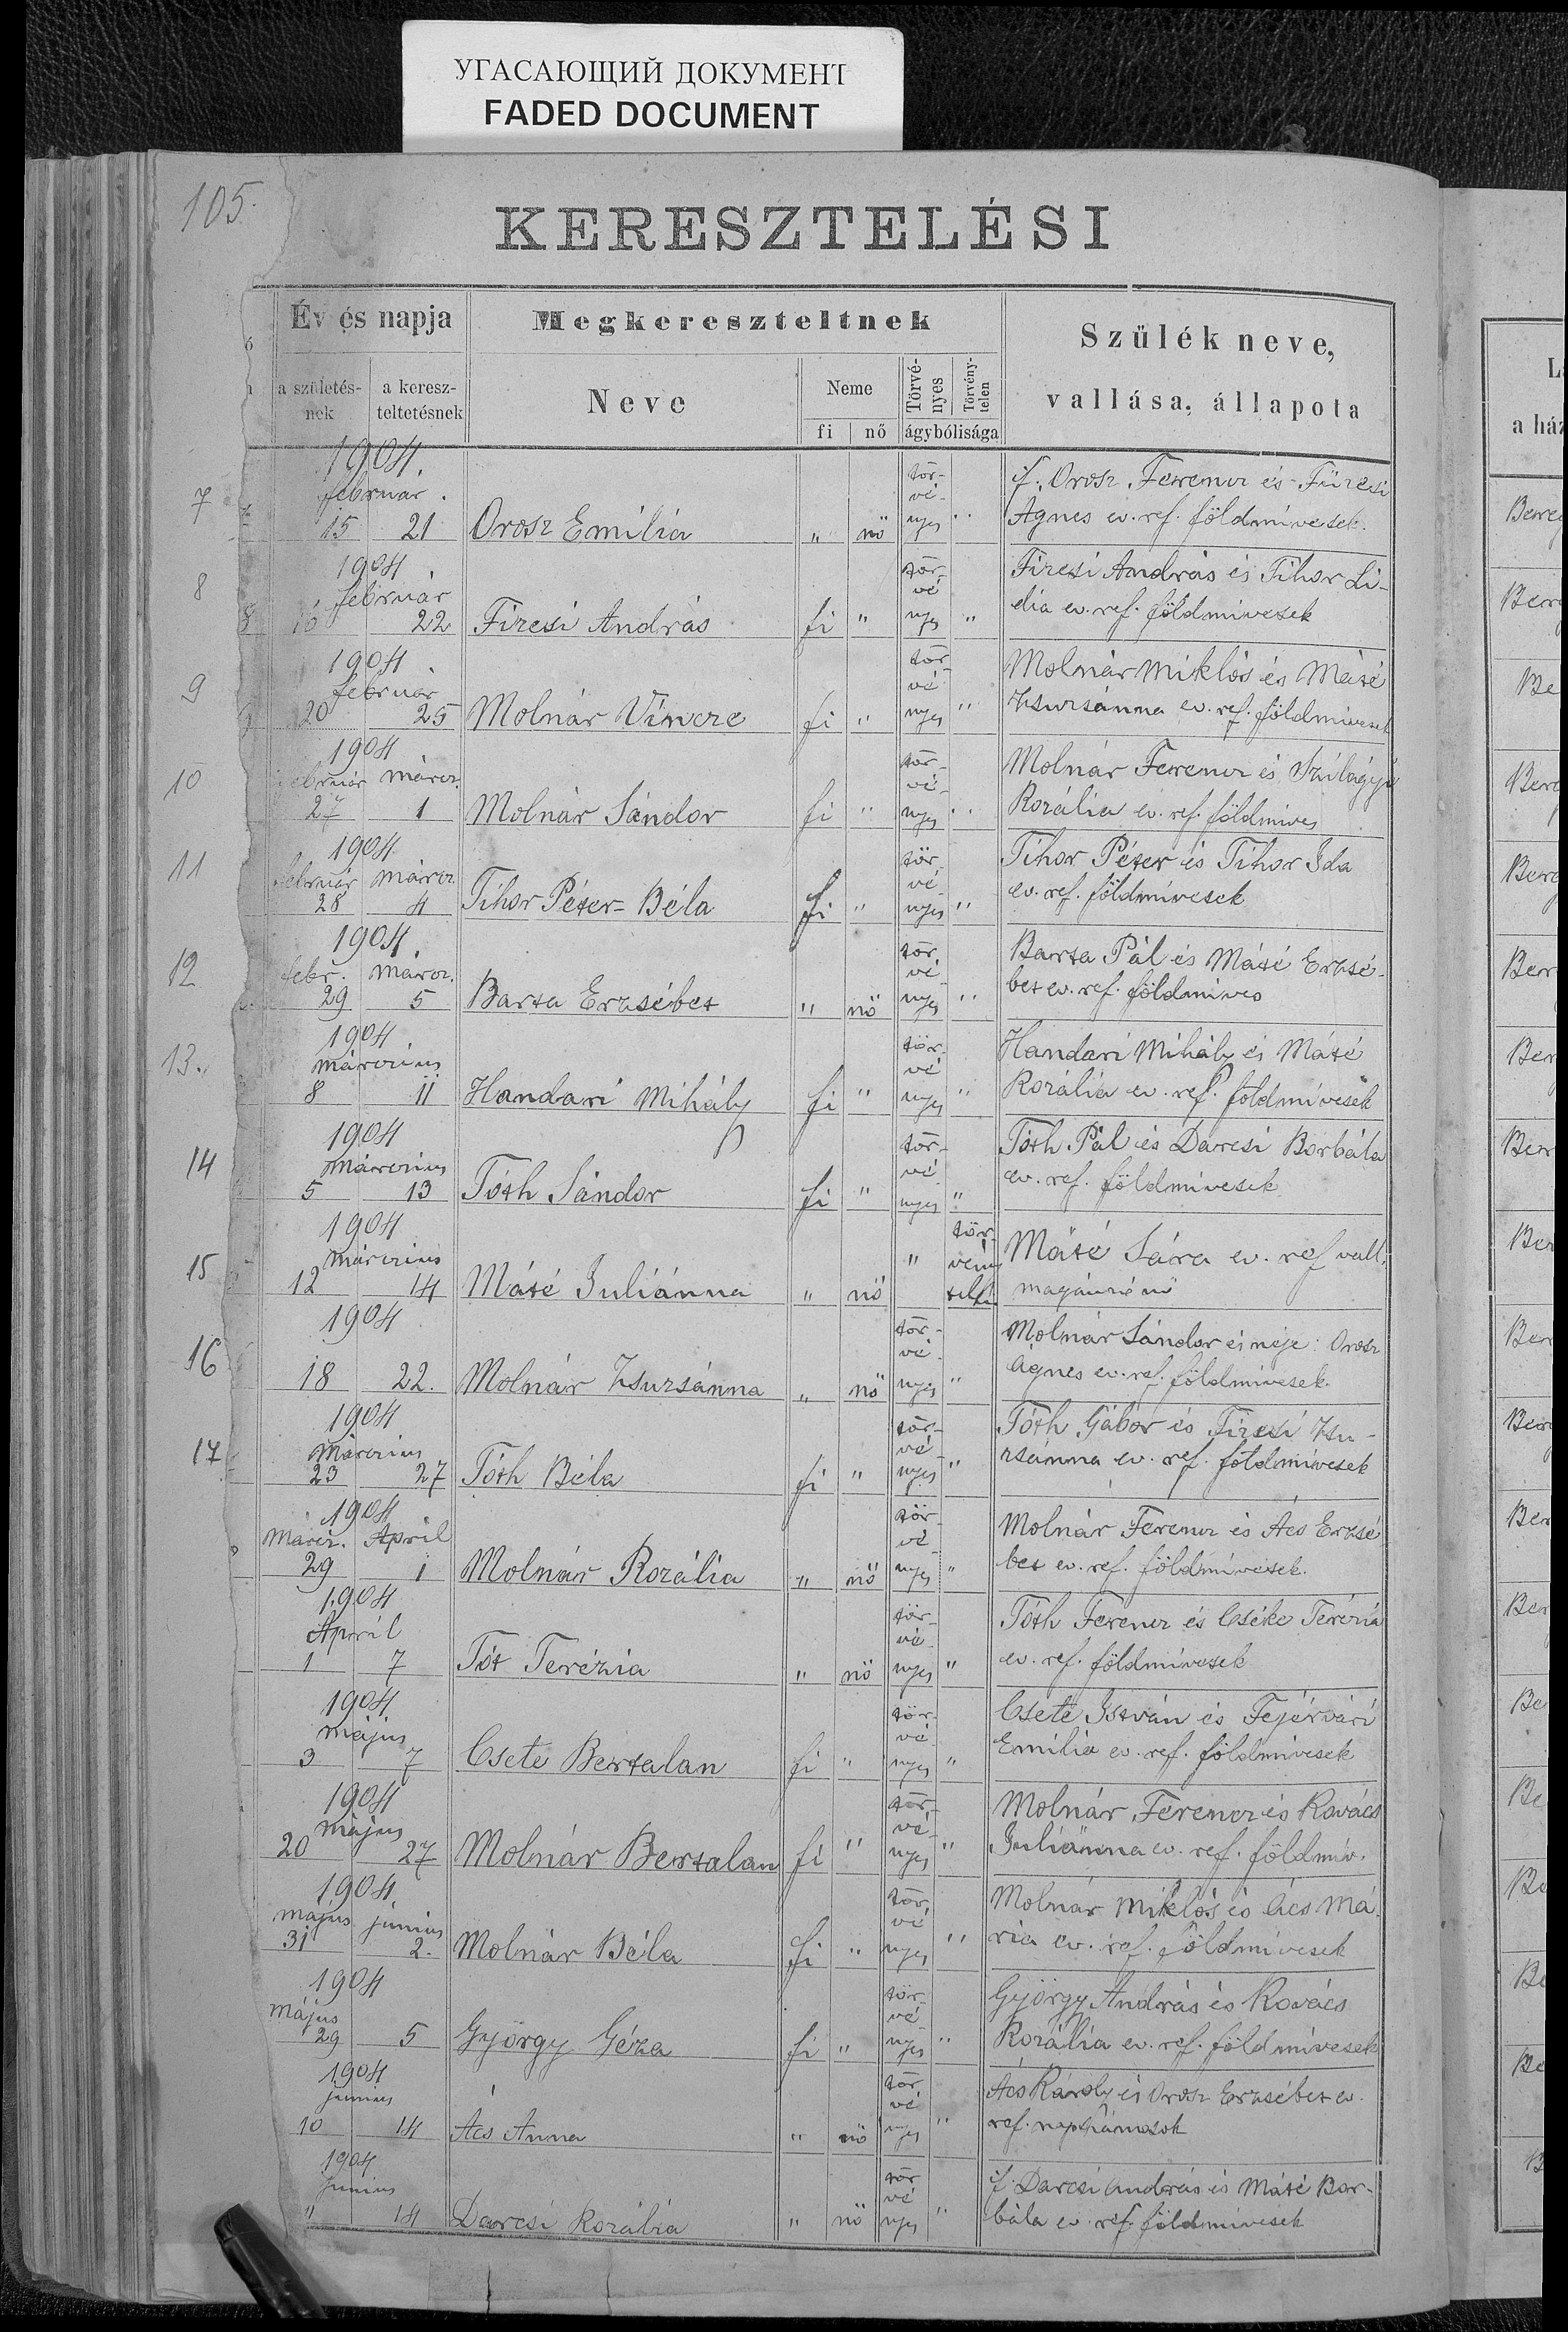 УГАСАЮЩИЙ ДОКУМЕНТ
FADED DOCUMENT
105.
KERESZTELÉSI
Év és napja
Megkereszteltnek
Szülék neve,
vallása, állapota
a születés-
nek
a keresz-
teltetésnek
Neve
Neme
fi nő
Törvé-
nyes
Törvény-
telen
ágybólisága
L
a ház
1904.
február.
7 15 21 Orosz Emilia " nö tör-vé-nyes " if. Orosz Ferencz és Füresi
Ágnes ev. ref. földmivesek. Bereg
1904.
február
8 22 Firesi András fi " tör-vé-nyes " Firesi András és Tihor Li-
dia ev. ref. földmivesek Ber
1904.
február
9 20 25 Molnár Vincze fi " tör-vé-nyes " Molnár Miklós és Máté
Zsuzsánna ev. ref. földmivesek Be
1904
február márcz.
10 27 1 Molnár Sándor fi " tör-vé-nyes " Molnár Ferencz és Szilágyi
Rozália ev. ref. földmives Berg
1904
február márcz
11 28 4 Tihor Péter-Béla fi " tör-vé-nyes " Tihor Péter és Tihor Ida
ev. ref. földmivesek Berg
1904.
febr. márcz.
12 29 5 Barta Erzsébet " nö tör-vé-nyes " Barta Pál és Máté Erzsé-
bet ev. ref. földmives Ber
1904
márczius
13. 8 11 Handari Mihály fi " tör-vé-nyes " Handari Mihály és Máté
Rozália ev. ref. földmivesek Ber
1904
márczius
14 5 13 Tóth Sándor fi " tör-vé-nyes " Tóth Pál és Darcsi Borbála
ev. ref. földmivesek Ber
1904
márczius
15 12 14 Máté Juliánna " nö " Máté Sára ev. ref vall.
Ber
1904
16 18 22. Molnár Zsuzsánna " nö tör-vé-nyes " Molnár Sándor és neje: Orosz
Ágnes ev. ref. földmivesek. Ber
1904
Márczius
17 23 27 Tóth Béla fi " tör-vé-nyes " Tóth Gábor és Firesi Zsu-
zsánna ev. ref. földmivesek Ber
1904
Márcz. April
29 1 Molnár Rozália " nö tör-vé-nyes " Molnár Ferencz és Ács Erzsé
bet ev. ref. földmivesek. Ber
1904
April
1 7 Tót Terézia " nö tör-vé-nyes " Tóth Ferencz és Cséke Terézia
ev. ref. földmivesek Ber
1904
május
3 7 Csete Bertalan fi " tör-vé-nyes " Csete István és Fejérvári
Emilia ev. ref. földmivesek Be
1904
május
20 27 Molnár Bertalan fi " tör-vé-nyes " Molnár Ferencz és Kovács
Juliánna ev. ref. földmiv. Be
1904
május június
31 2. Molnár Béla fi " tör-vé-nyes " Molnár Miklós és Ács Má-
ria ev. ref. földmivesek Be
1904
Május
29 5 György Géza fi " tör-vé-nyes " György András és Kovács
Rozália ev. ref. földmivesek Be
1904
június
10 14 Ács Anna " nö tör-vé-nyes " Ács Károly és Orosz Erzsébet ev.
ref. napszámosok Be
1904
Június
" 14 Darcsi Rozália " nö tör-vé-nyes " if. Darcsi András és Máté Bor-
bála ev. ref. földmivesek B